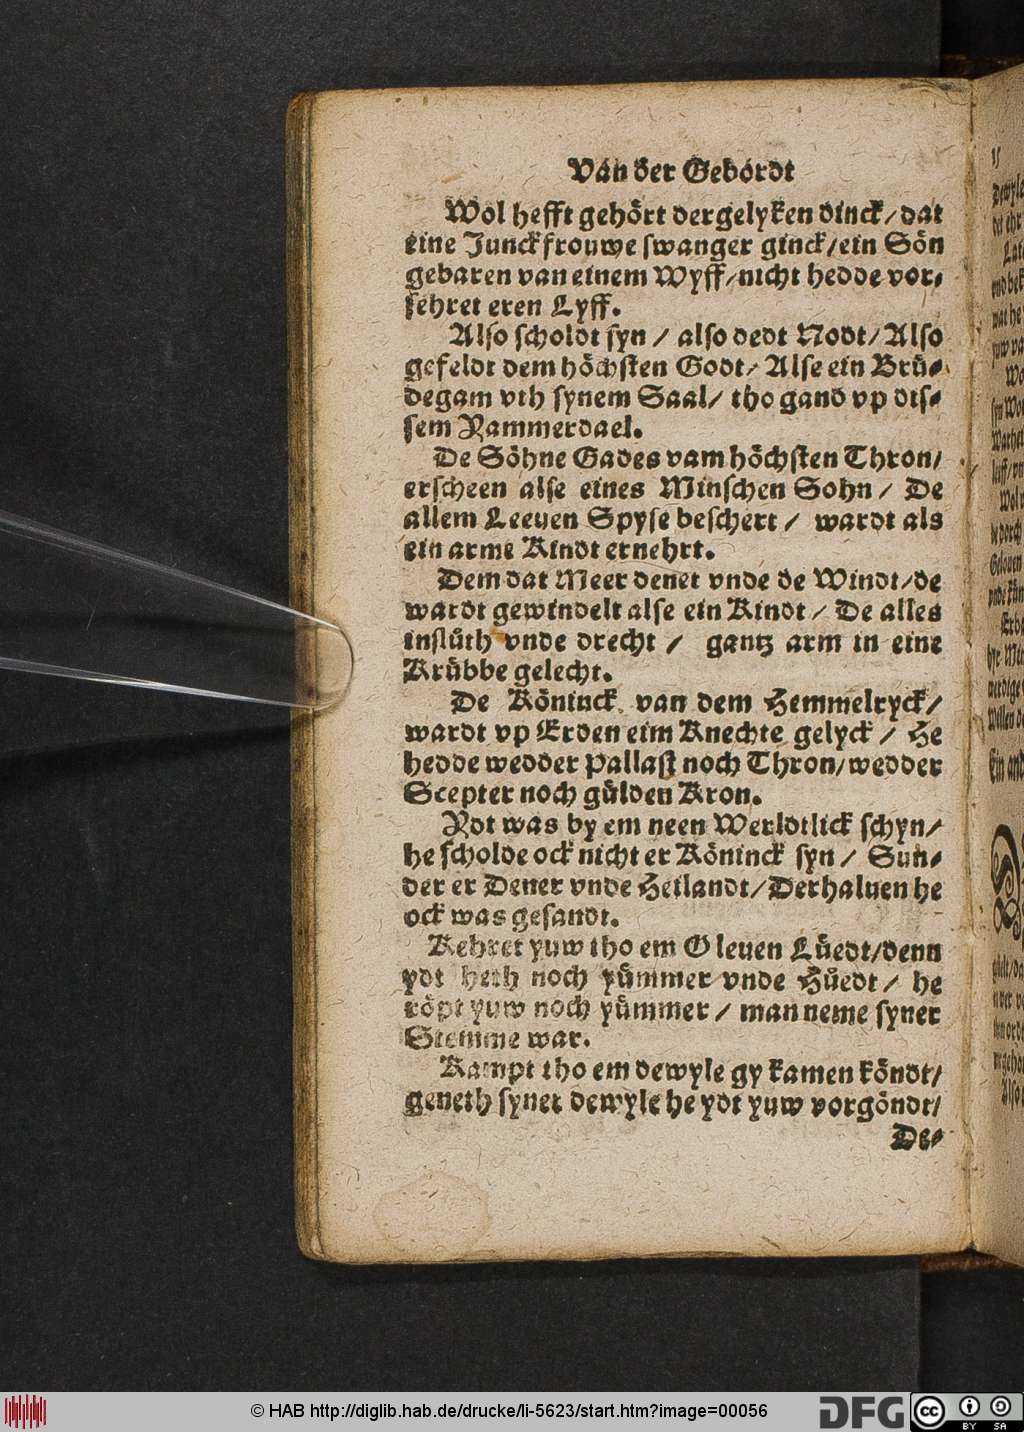 Van der Gebordt
Wol hefft gehört dergelyken dinck/dat
eine Junckfrouwe swanger ginck/ein Sön
gebaren van einem Wyff/nicht hedde vor⸗
sehret eren Lyff.
Also scholdt syn / also dedt Nodt/Also
gefeldt dem höchsten Godt/Alse ein Brü⸗
degam vth synem Saal/ tho gand vp dis⸗
sem Jammerdael.
De Söhne Gades vam höchsten Thron/
erscheen alse eines Minschen Sohn/ De
allem Leeuen Spyse beschert / wardt als
ein arme Kindt ernehrt.
Dem dat Meer denet vnde de Windt/de
wardt gewindelt alse ein Kindt / De alles
insluͤth vnde drecht / gantz arm in eine
Krübbe gelecht.
De Köninck van dem Hemmelryck/
wardt vp Erden eim Knechte gelyck / He
hedde wedder Pallast noch Thron/wedder
Scepter noch gülden Kron.
Idt was by em neen Werldtlick schyn/
he scholde ock nicht er Köninck syn / Sun⸗
der er Dener vnde Heilandt/Derhaluen he
ock was gesandt.
Kehret yuw tho em G leuen Lüedt/denn
ydt heth noch yümmer vnde Hüedt/ he
röpt yuw noch yümmer / man neme syner
Stemme war.
Kampt tho em dewyle gy kamen köndt/
geneth syner dewyle he ydt yuw vorgöndt/
De⸗
© HAB http://diglib.hab.de/drucke/li-5623/start.htm?image=00056
DFG
cc
BY SA